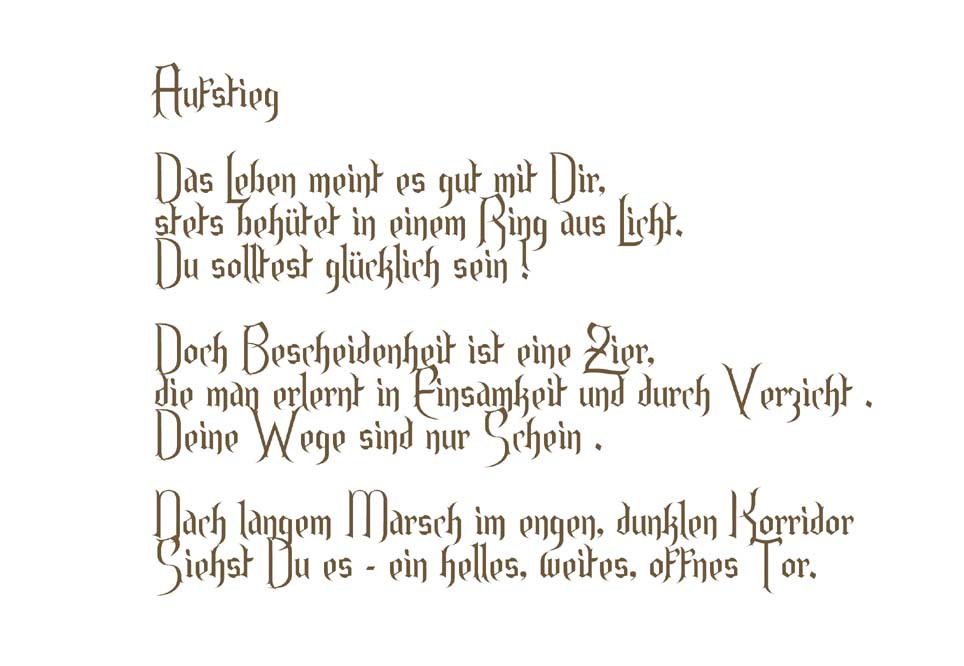 Aufstieg
Das Leben meint es gut mit Dir,
stets behütet in einem Ring aus Licht.
Du solltest glücklich sein !
Doch Bescheidenheit ist eine Zier,
die man erlernt in Einsamkeit und durch Verzicht .
Deine Wege sind nur Schein .
Nach langem Marsch im engen, dunklen Korridor
Siehst Du es - ein helles, weites, offnes Tor.